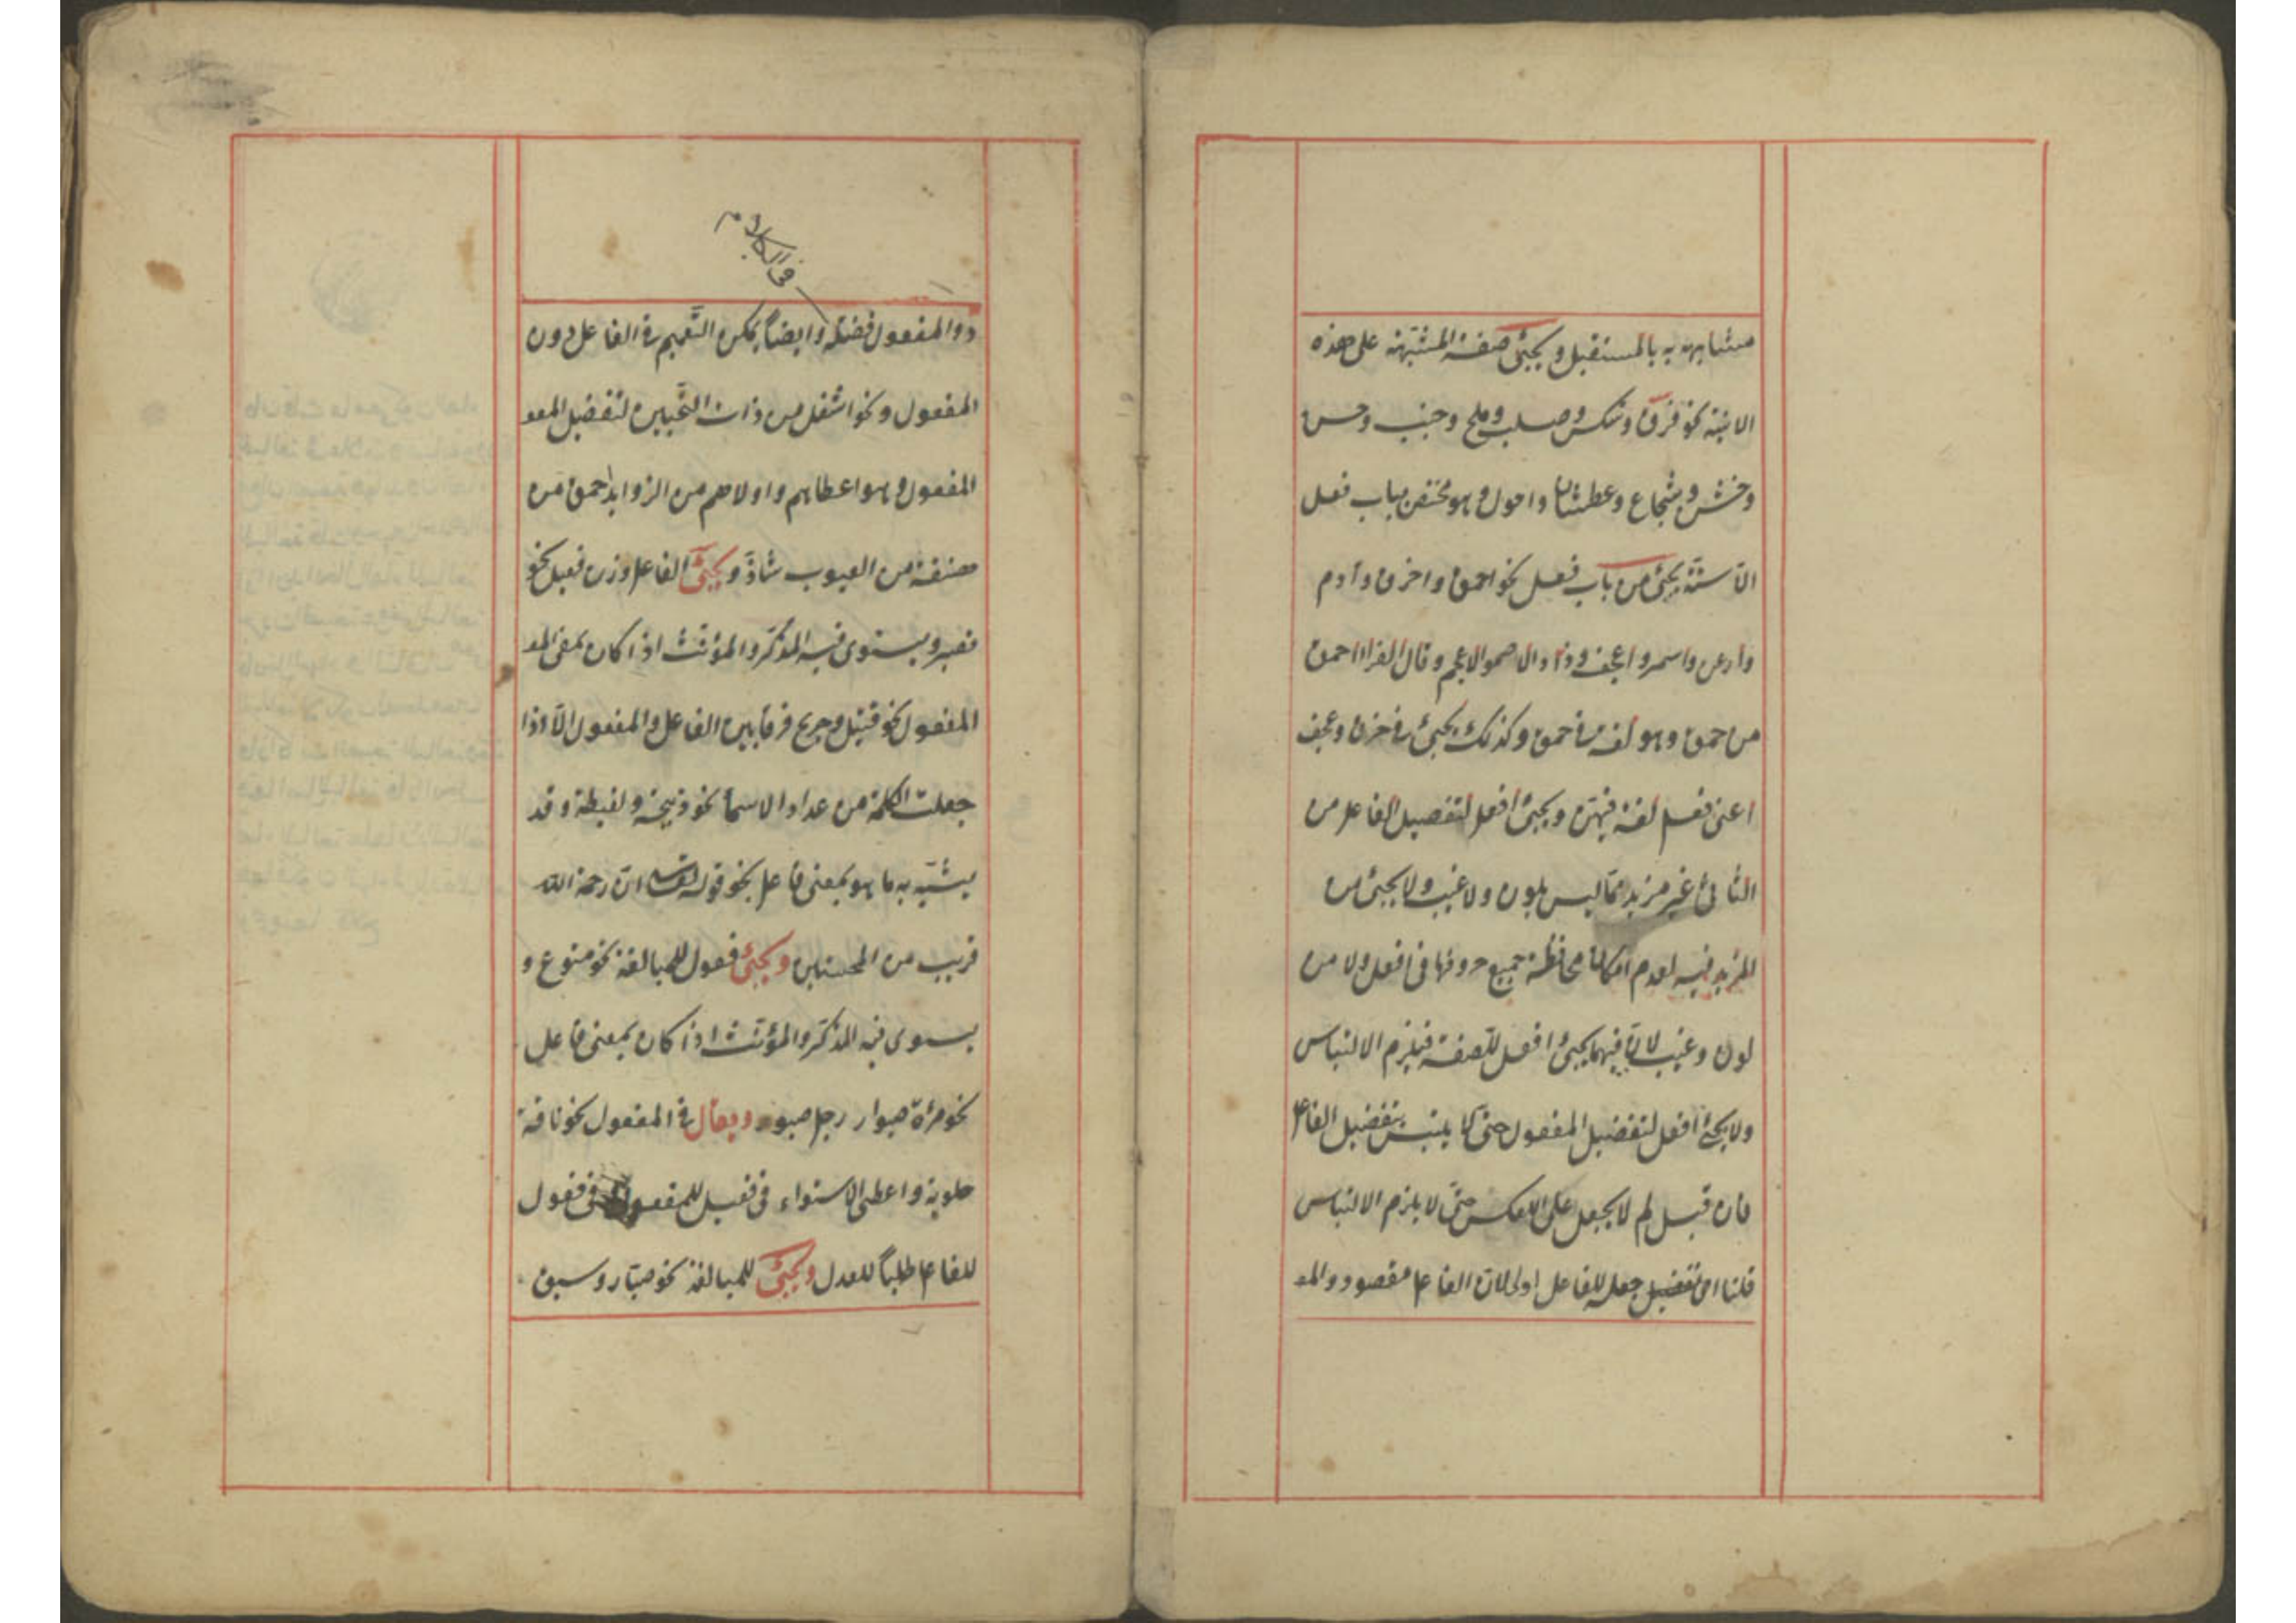 مشابهته بالمستقبل ويجيئ صفة المشبهة على هذه
الابنية نحو فرق وشكس وصلب وملح وجنب وحسن
وخشن وشجاع وعطشان واحول وهو مختص بباب فعل
الا ستة يجيئ من باب فعل نحو احمق واخرق وآدم
وارعن واسمر واعجف وزاد الاصمعى الاعجم وقال الفراء احمق
من حمق وهو لغة فى حمق وكذلك يجيئ فى خرق وعجف
اعنى فعل لغة فيهن ويجيئ افعل لتفضيل الفاعل من
الثلاثى غير مزيد مما ليس بلون ولا عيب ولا يجيئ من
المزيد فيه لعدم امكان محافظة جميع حروفها فى افعل ولا من
لون وعيب لان فيهما يجيئ افعل للصفة فيلزم الالتباس
ولا يجيئ افعل لتفضيل المفعول حتى لا يلتبس بتفضيل الفاعل
فان قيل لم لا يجعل على العكس حتى لا يلزم الالتباس
قلنا جعله للفاعل اولى لان الفاعل مقصود والمفـ
فى الكلام
والمفعول فضلة وايضا يمكن التعميم فى الفاعل دون
المفعول ونحو اشغل من ذات النحيين لتفضيل المفعو
المفعول وهو اعطاهم واولاهم من الزوايد احمق من
هبنقة من العيوب شاذ ويجيئ الفاعل وزن فعيل نحو
نصير ويستوى فيه المذكر والمؤنث اذا كان بمعنى المفـ
المفعول نحو قتيل وجريح فرقا بين الفاعل والمفعول الا اذا
جعلت الكلمة من عداد الاسماء نحو ذبيحة ولقيطة وقد
يشبه به ما هو بمعنى فاعل نحو قوله تعالى ان رحمة الله
قريب من المحسنين ويجيئ فعول للمبالغة نحو منوع و
يستوى فيه المذكر والمؤنث اذا كان بمعنى فاعل
نحو مرأة صبوار رجل صبور ويقال فى المفعول نحو ناقة
حلوبة واعطى الاستواء فى فعيل للمفعول فى فعول
للفاعل طلبا للعدل ويجيئ للمبالغة نحو صبار وسيف